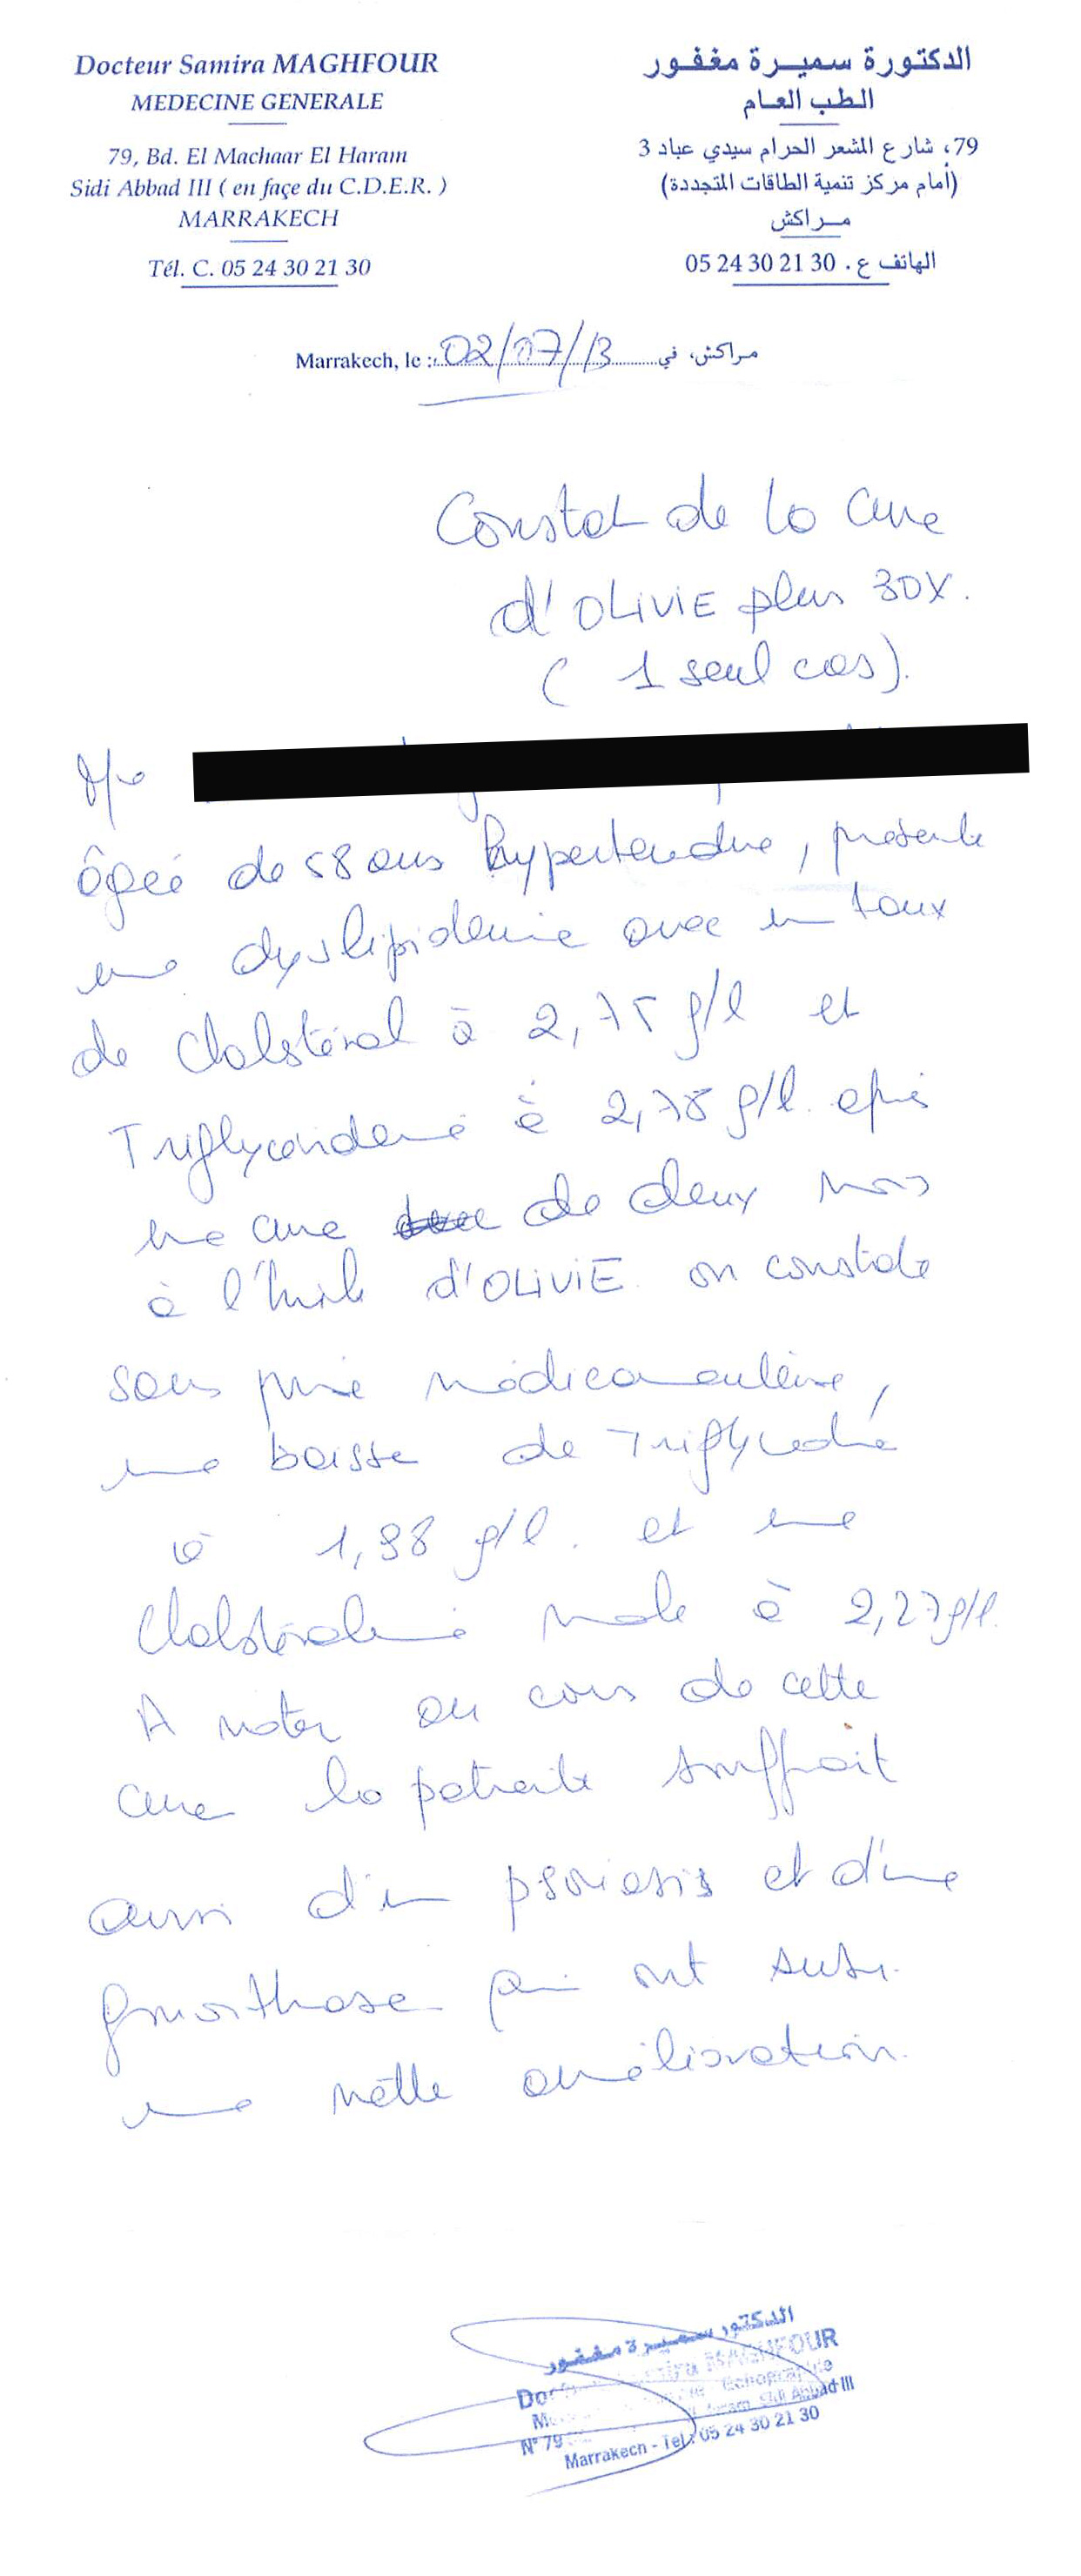 Docteur Samira MAGHFOUR
MEDECINE GENERALE
79, Bd. El Machaar El Haram
Sidi Abbad III ( en façe du C.D.E.R. )
MARRAKECH
Tél. C. 05 24 30 21 30
الدكتورة سميرة مغفور
الطب العام
79، شارع المشعر الحرام سيدي عباد 3
(أمام مركز تنمية الطاقات المتجددة)
مراكش
الهاتف ع. 05 24 30 21 30
Marrakech, le : 02/07/13 مراكش، في
Constat de la cure
d'OLiViE plus 30X.
( 1 seul cas).
âgée de 58 ans hypertendue, présente
une dyslipidémie avec un taux
de cholstérol à 2,75 g/l et
à 2,78 g/l. après
une cure de deux mois
à l'huile d'OLiViE on constate
sans prise médicamenteuse,
une baisse de
à 1,98 g/l. et une
à 2,27 g/l.
A noter au cours de cette
cure la patiente souffrait
aussi d'un psoriasis et d'une
gonarthose qui ont subi
une nette amélioration.
الدكتور سميرة مغفور
MAGHFOUR
Echographie
N° 79 Sidi Abbad III
Marrakech - Tel : 05 24 30 21 30